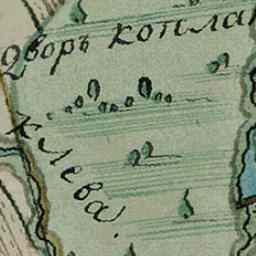 Дворъ коплан
клева.